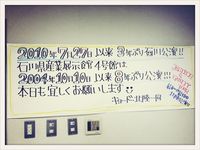 2010年7月22日以来 3年ぶり石川公演!!
石川県産業展示館4号館は
2004年10月10日以来 8年ぶり公演!!
本日も宜しくお願いします
キョードー北陸一同